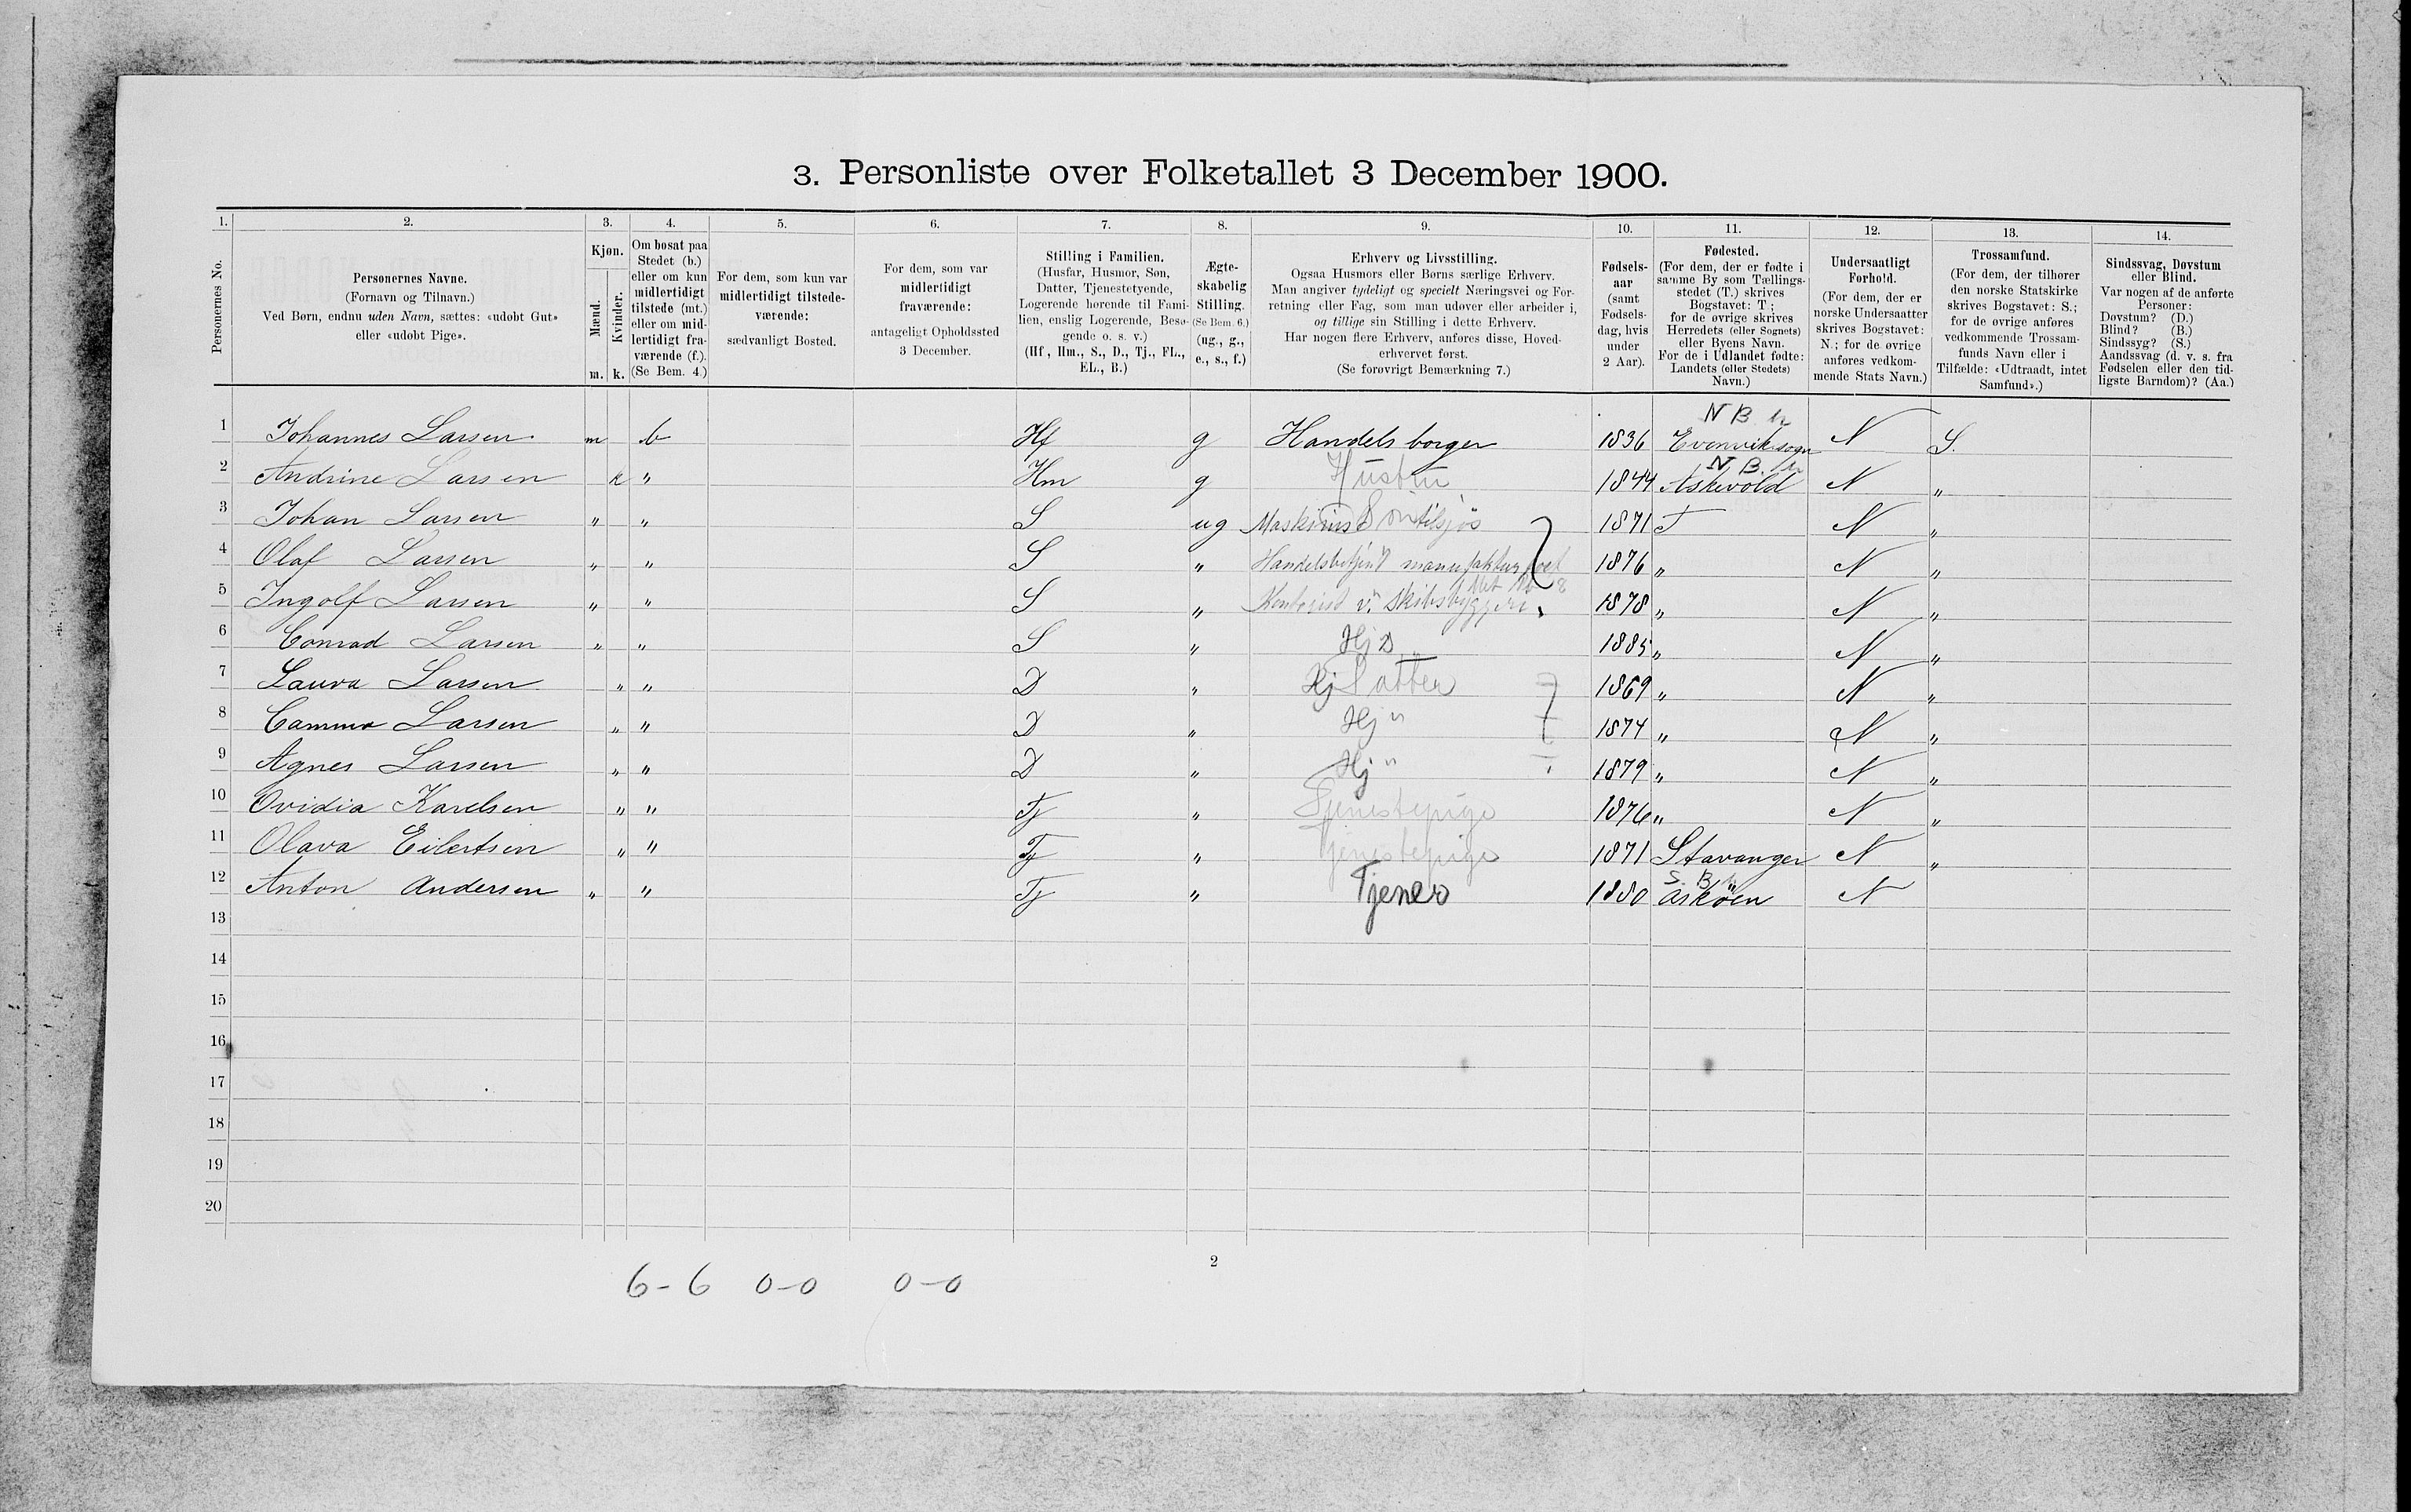 3. Personliste over Folketallet 3 December 1900.
1. 2. 3. 4. 5. 6. 7. 8. 9. 10. 11. 12. 13. 14.
Personernes No.
Personernes Navne.
(Fornavn og Tilnavn.)
Ved Børn, endnu uden Navn, sættes: «udøbt Gut»
eller «udøbt Pige».
Kjøn.
Mænd.
Kvinder.
m. k.
Om bosat paa
Stedet (b.)
eller om kun
midlertidigt
tilstede (mt.)
eller om mid-
lertidigt fra-
værende (f.).
(Se Bem. 4.)
For dem, som kun var
midlertidigt tilstede-
værende:
sædvanligt Bosted.
For dem, som var
midlertidigt
fraværende:
antageligt Opholdssted
3 December.
Stilling i Familien.
(Husfar, Husmor, Søn,
Datter, Tjenestetyende,
Logerende hørende til Fami-
lien, enslig Logerende, Besø-
gende o. s. v.)
(Hf., Hm., S., D., Tj., FL.,
EL., B.)
Ægte-
skabelig
Stilling.
(Se Bem. 6.)
(ug., g.,
e., s., f.)
Erhverv og Livsstilling.
Ogsaa Husmors eller Børns særlige Erhverv.
Man angiver tydeligt og specielt Næringsvei og For-
retning eller Fag, som man udøver eller arbeider i,
og tillige sin Stilling i dette Erhverv.
Har nogen flere Erhverv, anføres disse, Hoved-
erhvervet først.
(Se forøvrigt Bemærkning 7.)
Fødsels-
aar
(samt
Fødsels-
dag, hvis
under
2 Aar).
Fødested.
(For dem, der er fødte i
samme By som Tællings-
stedet (T.) skrives
Bogstavet: T;
for de øvrige skrives
Herredets (eller Sognets)
eller Byens Navn.
For de i Udlandet fødte:
Landets (eller Stedets)
Navn.)
Undersaatligt
Forhold.
(For dem, der er
norske Undersaatter
skrives Bogstavet:
N.; for de øvrige
anføres vedkom-
mende Stats Navn.)
Trossamfund.
(For dem, der tilhører
den norske Statskirke
skrives Bogstavet: S.;
for de øvrige anføres
vedkommende Trossam-
funds Navn eller i
Tilfælde: «Udtraadt, intet
Samfund».)
Sindssvag, Døvstum
eller Blind.
Var nogen af de anførte
Personer:
Døvstum? (D.)
Blind? (B.)
Sindssyg? (S.)
Aandssvag (d. v. s. fra
Fødselen eller den tid-
ligste Barndom)? (Aa.)
N B
1 Johannes Larsen m b Hf g Handelsborger 1836 Evenviksogn N S.
N. B.
2 Andrine Larsen k " Hm g Hustru 1844 Askevold N "
3 Johan Larsen " " S ug Maskinist Søn tilsjøs 1871 T N "
4 Olaf Larsen " " S " Handelsbetjent manufaktur 1876 " N "
5 Ingolf Larsen " " S " Kontorist v. Skibsbyggeri 1878 " N "
6 Conrad Larsen " " S " Hj D 1885 " N "
7 Laura Larsen " " D " Hj Datter 1869 " N "
8 Camma Larsen " " D " Hj " 1874 " N "
9 Agnes Larsen " " D " Hj " 1879 " N "
10 Ovidia Karelsen " " Tj " Tjenestepige 1876 " N "
11 Olava Eilertsen " " Tj " Tjenestepige 1871 Stavanger N "
S. B.
12 Anton Andersen " " Tj " Tjener 1880 Askøen N
13
14
15
16
17
18
19
20
2
6-6 0-0 0-0